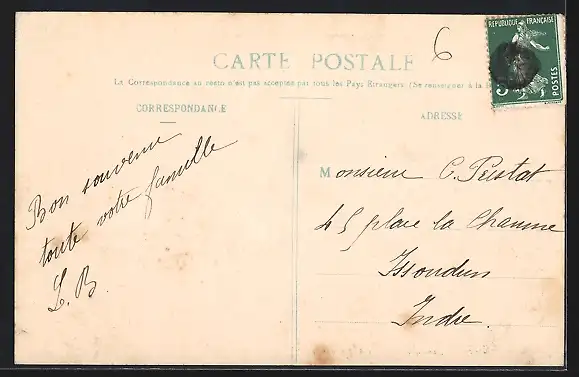 6
RÉPUBLIQUE FRANÇAISE
POSTES
5
CARTE POSTALE
La Correspondance au recto n'est pas acceptée par tous les Pays Etrangers (Se renseigner à la
CORRESPONDANCE
ADRESSE
Bon souvenir
toute votre famille
L. B.
Monsieur C.
45 place la Chaume
Issoudun
Indre.